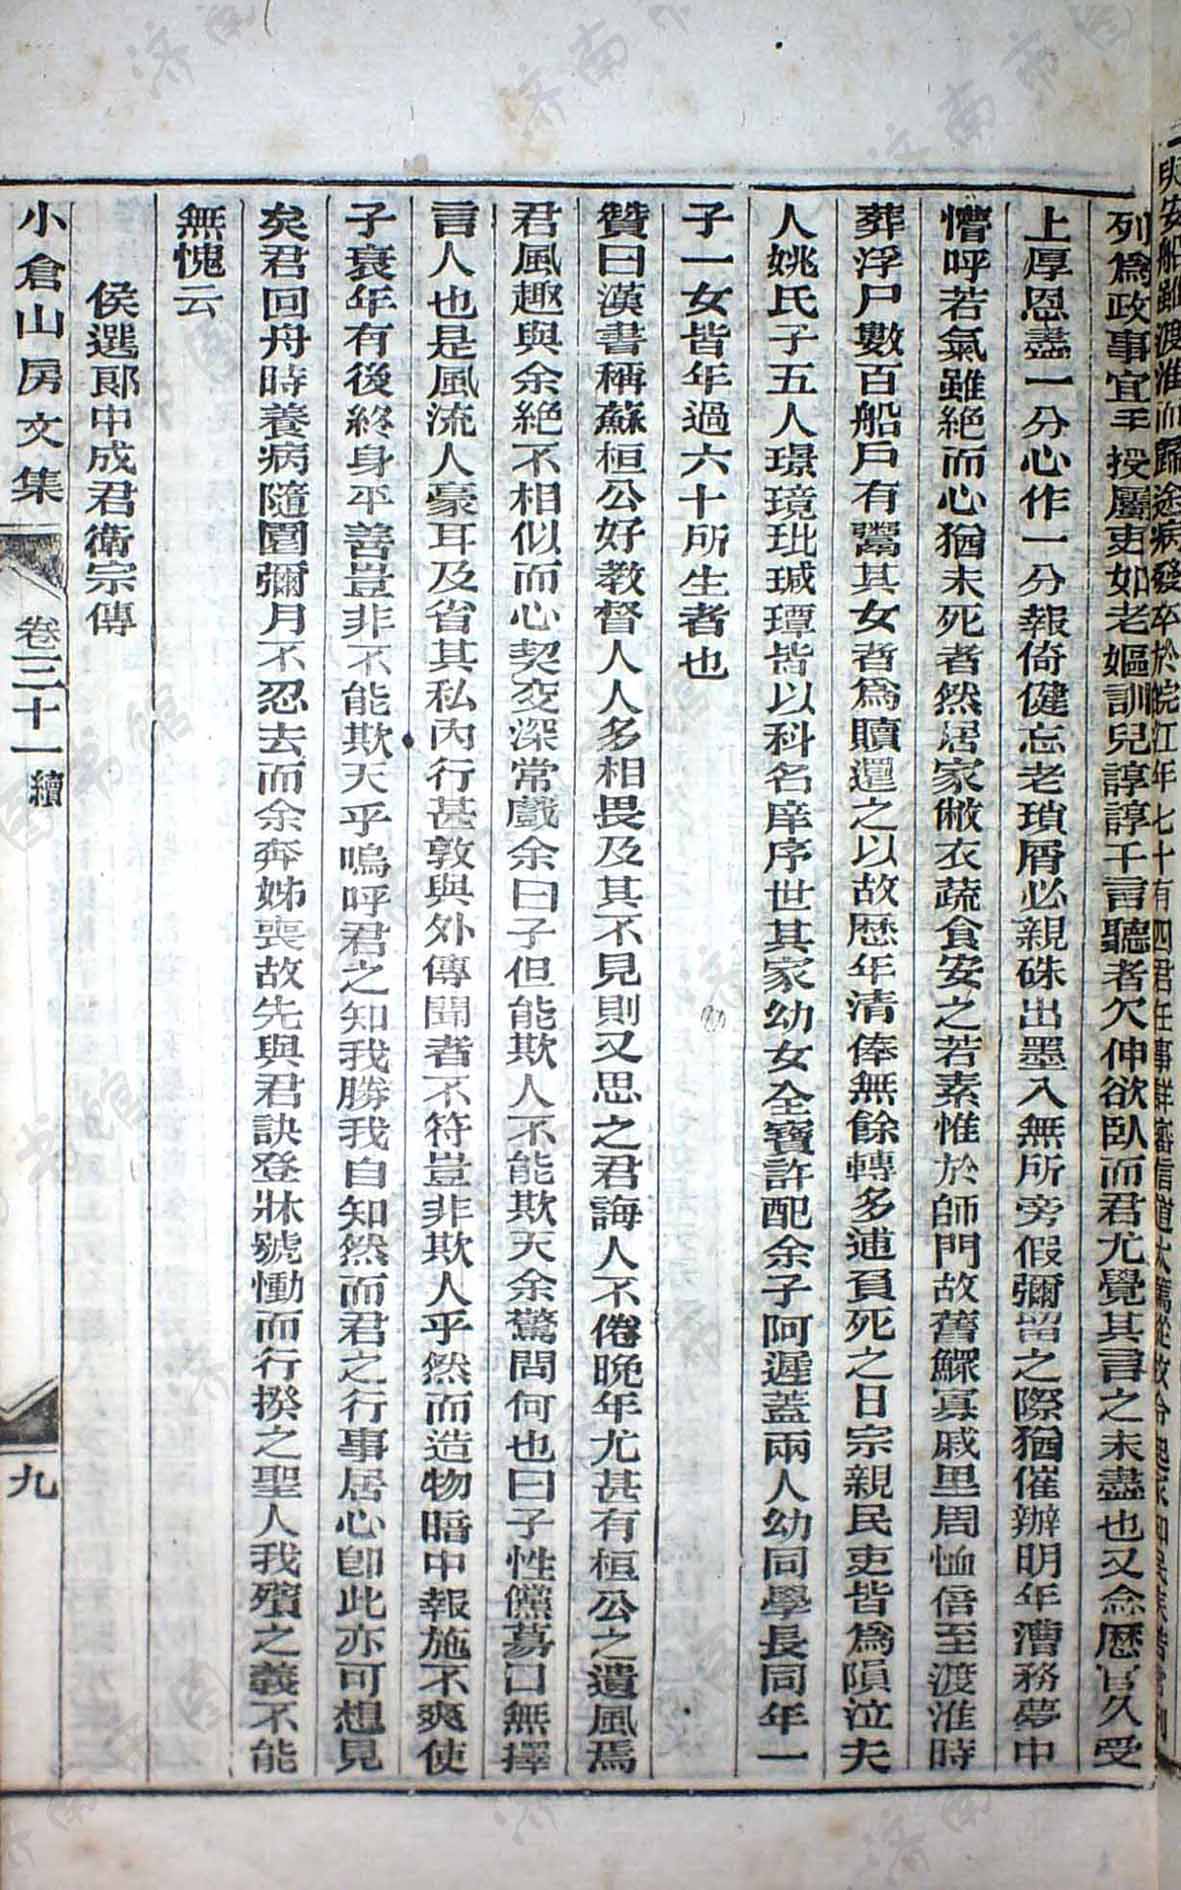 與安船雖渡淮而歸途病發卒於皖江年七十有四君任事詳審信道
列爲政事宜手授屬吏如老嫗訓兒諄諄千言聽者欠伸欲臥而君尤覺其言之未盡也又念歷官久受
上厚恩盡一分心作一分報倚健忘老瑣屑必親硃出墨入無所旁假彌留之際猶催辦明年漕務夢中
懵呼若氣雖絕而心猶未死者然居家敝衣蔬食安之若素惟於師門故舊鰥寡戚里周恤倍至渡淮時
葬浮尸數百船戶有鬻其女者爲贖還之以故歷年清俸無餘轉多逋負死之日宗親民吏皆爲隕泣夫
人姚氏子五人璟璄玭瑊璍皆以科名庠序世其家幼女全寶許配余子阿遲蓋兩人幼同學長同年一
子一女皆年過六十所生者也
贊曰漢書稱蘇桓公好教督人人多相畏及其不見則又思之君誨人不倦晚年尤甚有桓公之遺風焉
君風趣與余絕不相似而心契交深常戲余曰子但能欺人不能欺天余驚問何也曰子性儻蕩口無擇
言人也是風流人豪耳及省其私內行甚敦與外傳聞者不符豈非欺人乎然而造物暗中報施不爽使
子衰年有後終身平善豈非不能欺天乎嗚呼君之知我勝我自知然而君之行事居心卽此亦可想見
矣君回舟時養病隨園彌月不忍去而余奔姊喪故先與君訣登牀號慟而行揆之聖人我殯之義不能
無愧云
侯選郞中成君衛宗傳
小倉山房文集 卷三十一 續 九